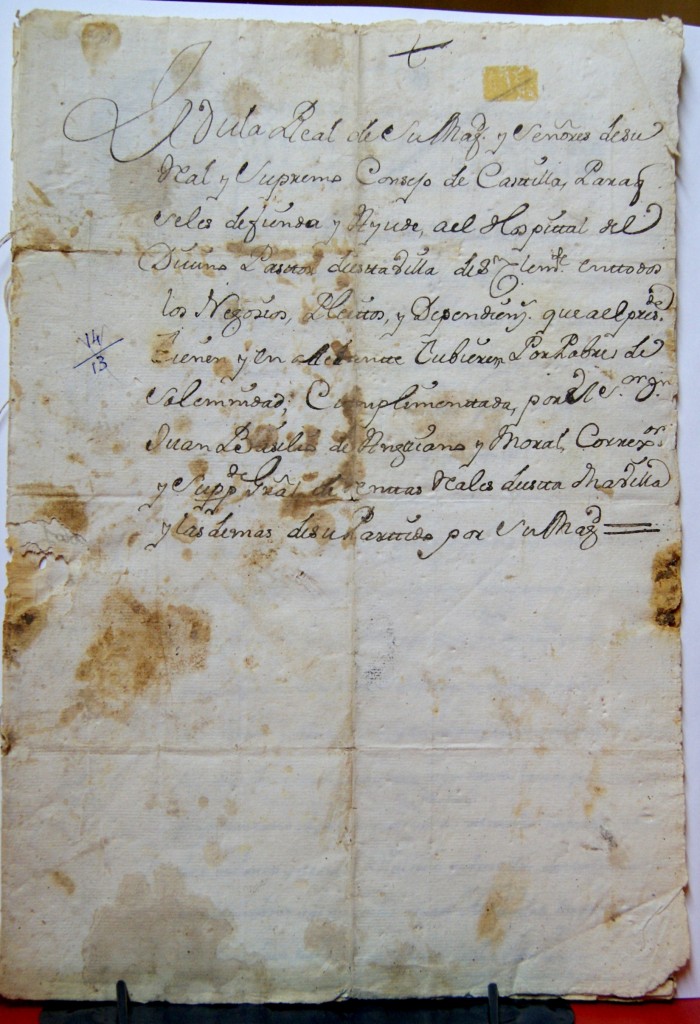 Zedula Real de Su Mag.d y Señores de su
Real y Supremo Consejo de Castilla, Para q.
se les defienda y Ayude, a el Hospital del
Diuino Pastor desta villa de S.n Clem.te en todos
los Negosios, Pleitos, y Dependien.s que a el pres.te
tienen y en adelante tubieren Por Pobres de
Solemnidad; Cumplimentada, por el S.or Dn
Juan Basilio de Anguiano y Moral, Correx.or
y Supp.te Gral de Renttas Reales desta Ma Villa
y las demas de su Partido por Su Mag.d
14/13